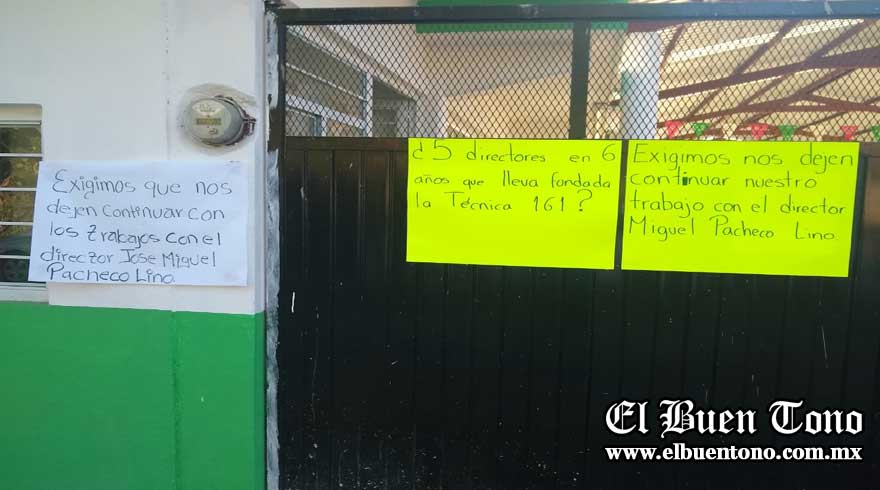 Exigimos que nos
dejen continuar con
los trabajos con el
director Jose Miguel
Pacheco Lino
¿5 directores en 6
años que lleva fondada
la Técnica 161?
Exigimos nos dejen
continuar nuestro
trabajo con el director
Miguel Pacheco Lino
El Buen Tono
www.elbuentono.com.mx